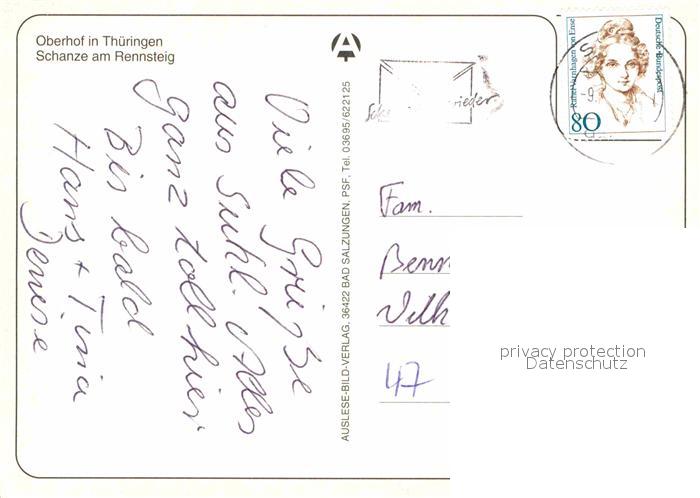 Oberhof in Thüringen
Schanze am Rennsteig
Viele Grüße
aus Suhl. Alles
ganz toll hier.
Bis bald
Hans + Tina
Denise
AUSLESE-BILD-VERLAG, 36422 BAD SALZUNGEN, PSF, Tel. 03695/622125
wieder
Rahel Varnhagen von Ense
Deutsche Bundespost
80
-9.
Fam.
Benn
Velh
47
privacy protection
Datenschutz